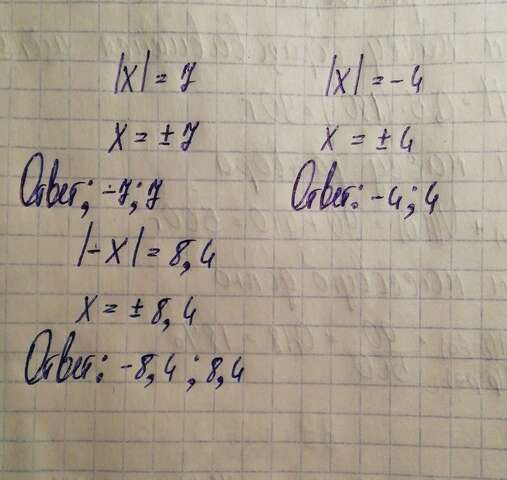 |x| = 7
x = ± 7
Ответ: -7; 7
|-x| = 8,4
x = ± 8,4
Ответ: -8,4; 8,4
|x| = -4
x = ± 4
Ответ: -4; 4